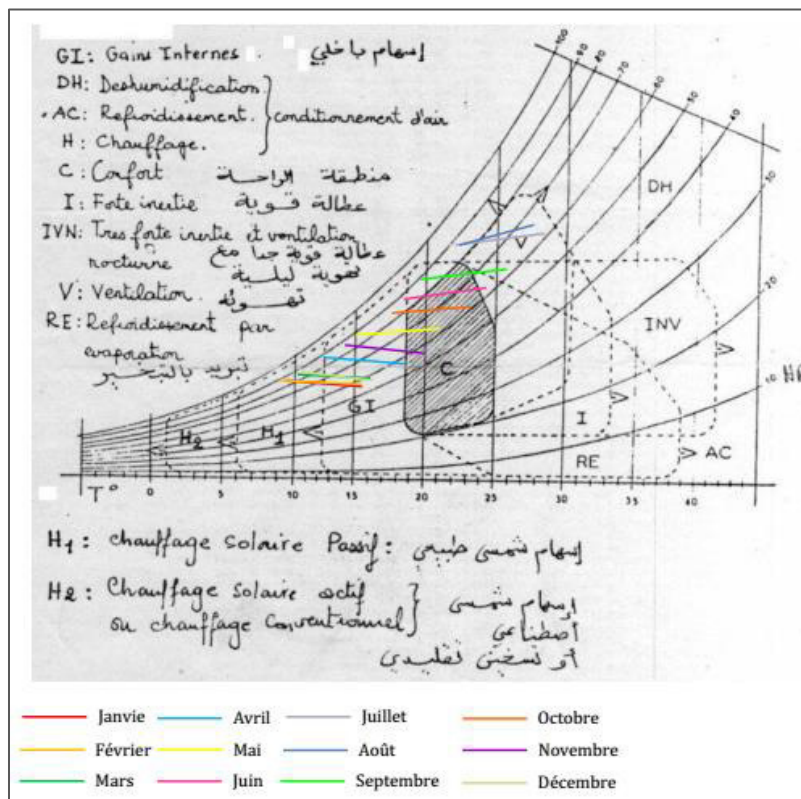 GI: Gains Internes. إسهام داخلي
DH: Deshumidification
AC: Refroidissement. conditionnement d'air
H: Chauffage.
C: Confort منطقة الراحة
I: Forte inertie عطالة قوية
IVN: Tres forte inertie et ventilation
nocturne عطالة قوية جدا مع
تهوية ليلية
V: Ventilation. تهوئة
RE: Refroidissement par
evaporation
تبريد بالتبخير
100 90 80 70 60 50 40
30
20
10
HR
DH
V
INV
C
GI
I
H2 H1
RE AC
T° 0 5 10 15 20 25 30 35 40
H1: chauffage solaire Passif: إسهام شمسي طبيعي
H2: Chauffage solaire actif إسهام شمسي
ou chauffage conventionnel اصطناعي
أو تسخين تقليدي
Janvie Avril Juillet Octobre
Février Mai Août Novembre
Mars Juin Septembre Décembre